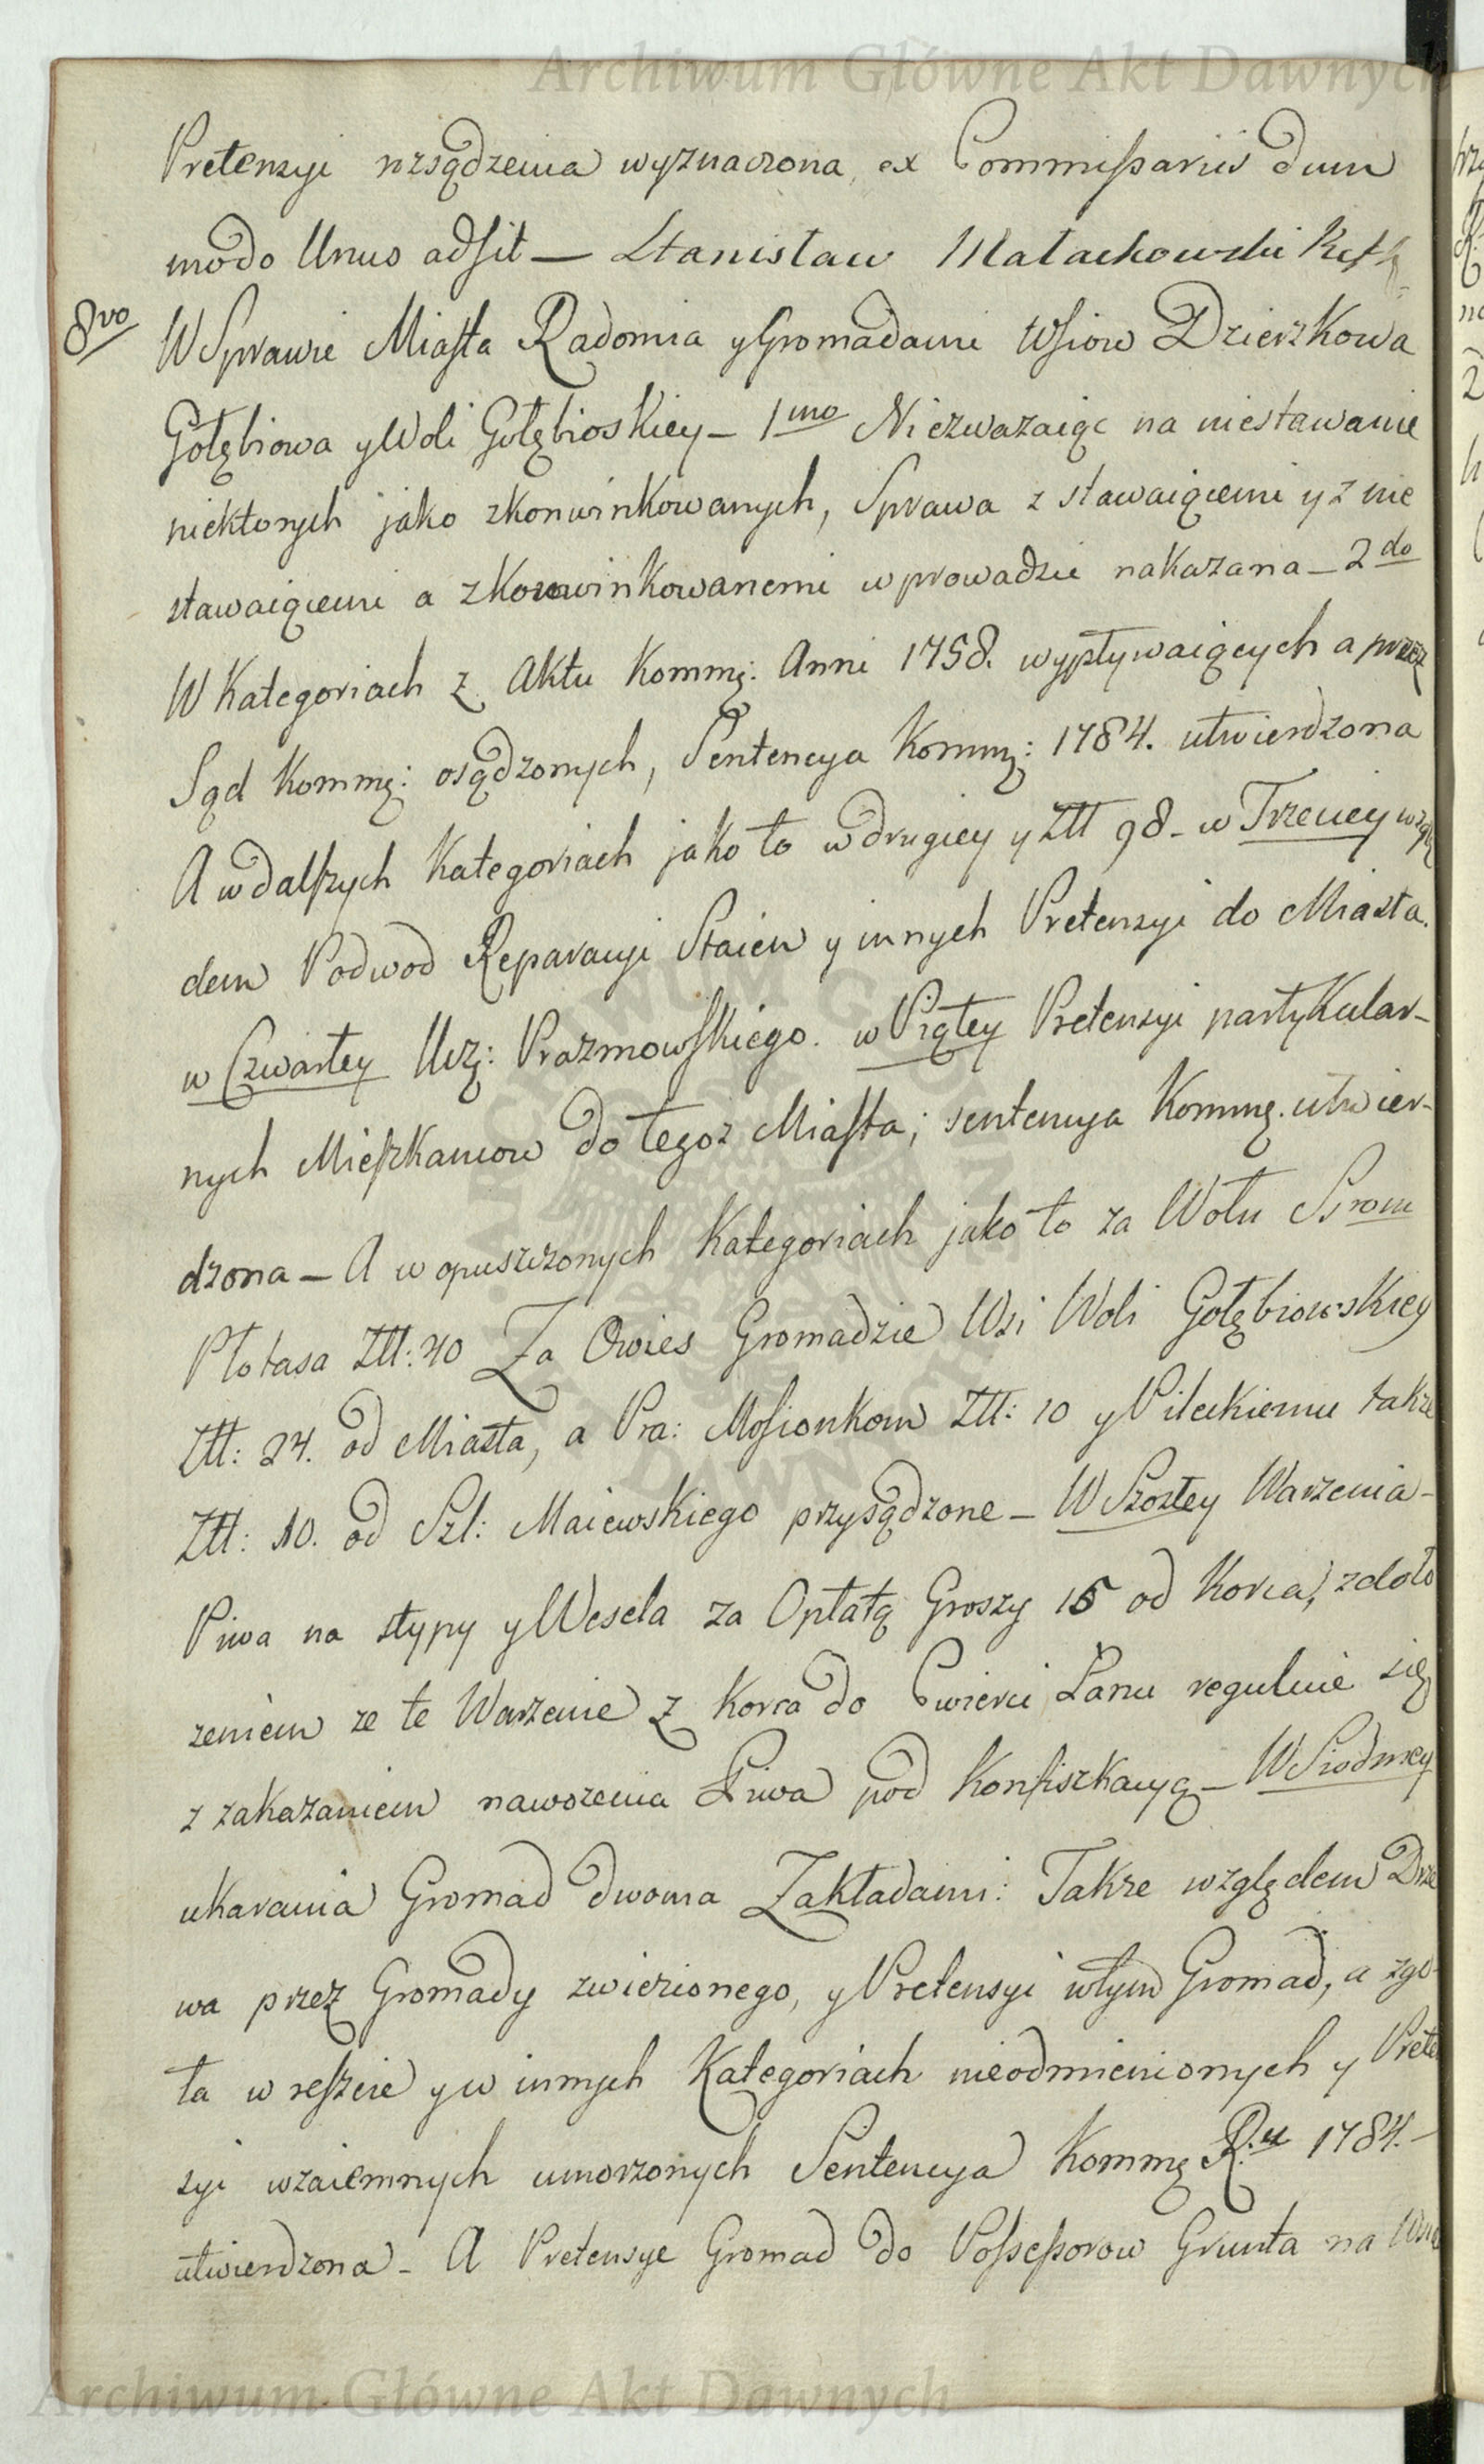 Archiwum Główne Akt Dawnych
Pretensyi rozsądzenia wyznaczona, ex Commißariis dum
modo Unus adsit — Stanisław Małachowski
8vo
W Sprawie Miasta Radomia y Gromadami Wsiow Dzierzkowa
Gołębiowa y Woli Gołębioskiey – 1mo Niezwazaiąc na niestawanie
niektorych jako zkonwinkowanych, Sprawa z stawaiącemi y z nie
stawaiącemi a zkonwinkowanemi wprowadzić nakazana – 2do
W Kategoriach z Aktu Kommę: Anni 1758. wypływaiących a przez
Sąd Kommę: osądzonych, Sentencya Kommę: 1784. utwierdzona
A w dalszych Kategoriach jako to w drugiey y Ztt 98 – w Trzeciey wzglę
dem Podwod Reparacyi Staien y innych Pretensyi do Miasta.
w Czwartey Urz: Prazmowskiego. w Piątey Pretensyi partykular–
nych Mieszkancow do tegoz Miasta; sentencya Kommę. utwier–
dzona – A w opuszczonych Kategoriach jako to za Wołu
Płotasa Ztt: 40 Za Owies Gromadzie Wsi Woli Gołębiowskiey
Ztt: 24. od Miasta, a Pra: Mosionkom Ztt: 10 y Pileckiemu takze
Ztt: 10. od Szl: Maiewskiego przysądzone – W Szostey Warzenia –
Piwa na stypy y Wesela za Opłatą Groszy 15 od Korca, z doło
zeniem ze te Warzenie z Korca do Cwierci Łanu regulnie się
z zakazaniem nawozenia Piwa pod Konfiszkacyą – W Siodmey
ukarania Gromad dwoma Zakładami: Takze względem Drze
wa przez Gromady zwiezionego, y Pretensyi wtym Gromad, a zgo–
ła w reszcie y w innych Kategoriach nieodmienionych y Preten
syi wzaiemnych umorzonych Sentencya Kommę R.u 1784. –
utwierdzona – A Pretensye Gromad do Possessorow Grunta na
Archiwum Główne Akt Dawnych